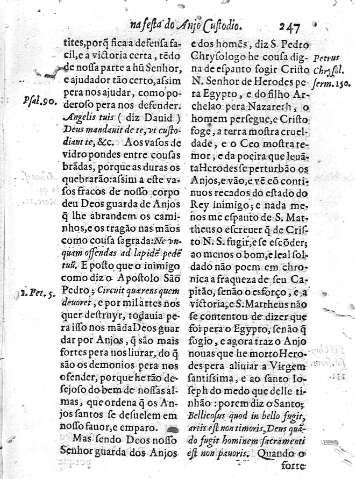 na festa do Anjo Custodio. 247
tites, porq̃ fica a defensa fa-
cil, e a victoria certa, tẽdo
de nossa parte a hũ Senhor,
e ajudador tão certo, assim
pera nos ajudar, como po-
Psal. 90.
deroso pera nos defender.
Angelis tuis (diz Dauid)
Deus mandauit de te, vt custo-
diant te, &c. Aos vasos de
vidro pondes entre cousas
brãdas, porque as duras os
quebrarão: assim a este va-
sos fracos de nosso corpo
deu Deos guarda de Anjos
q̃ lhe abrandem os cami-
nhos, e os tragão nas mãos
como cousa sagrada: Ne vn-
quam offendas ad lapidẽ pedẽ
tuũ. E posto que o inimigo
como diz o Apostolo São
1. Pet. 5.
Pedro: Circuit quærens quem
deuoret, e por mil artes nos
quer destruyr, todauia pe-
ra isso nos mãda Deos guar
dar por Anjos, q̃ são mais
fortes pera nos liurar, do q̃
são os demonios pera nos
ofender, porque he tão de-
sejoso do bem de nossas al-
mas, que ordena q̃ os An-
jos santos se desuelem em
nosso fauor, e emparo.
Mas sendo Deos nosso
Senhor guarda dos Anjos
e dos homẽs, diz S. Pedro
Petrus
Chrysologo he cousa dig-
Chrysol.
na de espanto fogir Cristo
serm. 150.
N. Senhor de Herodes pe-
ra Egypto, e do filho Ar-
chelao pera Nazareth, o
homem persegue, e Cristo
foge, a terra mostra cruel-
dade, e o Ceo mostra te-
mor, e da poeira que leuã-
ta Herodes se perturbão os
Anjos, e vão, e vẽ cõ conti
nuos recados do estado do
Rey inimigo; e nada me-
nos me espanto de S. Mat-
theus o escreuer q̃ de Cris-
to N. S. fugir, e se escõder;
ao menos o bom, e leal sol-
dado não poem em chro-
nica a fraqueza de seu Ca-
pitão, senão o esforço, e a
victoria; e S. Mattheus não
se contentou de dizer que
foi pera o Egypto, senão q̃
fogio, e agora traz o Anjo
nouas que he morto Hero-
des pera aliuiar a Virgem
santissima, e ao santo Io-
seph do medo que delle ti-
nhão: porem diz o Santo:
Bellicosus quod in bello fugit,
artis est non timoris, Deus quã-
do fugit hominem sacramenti
est non pauoris. Quando o
forte